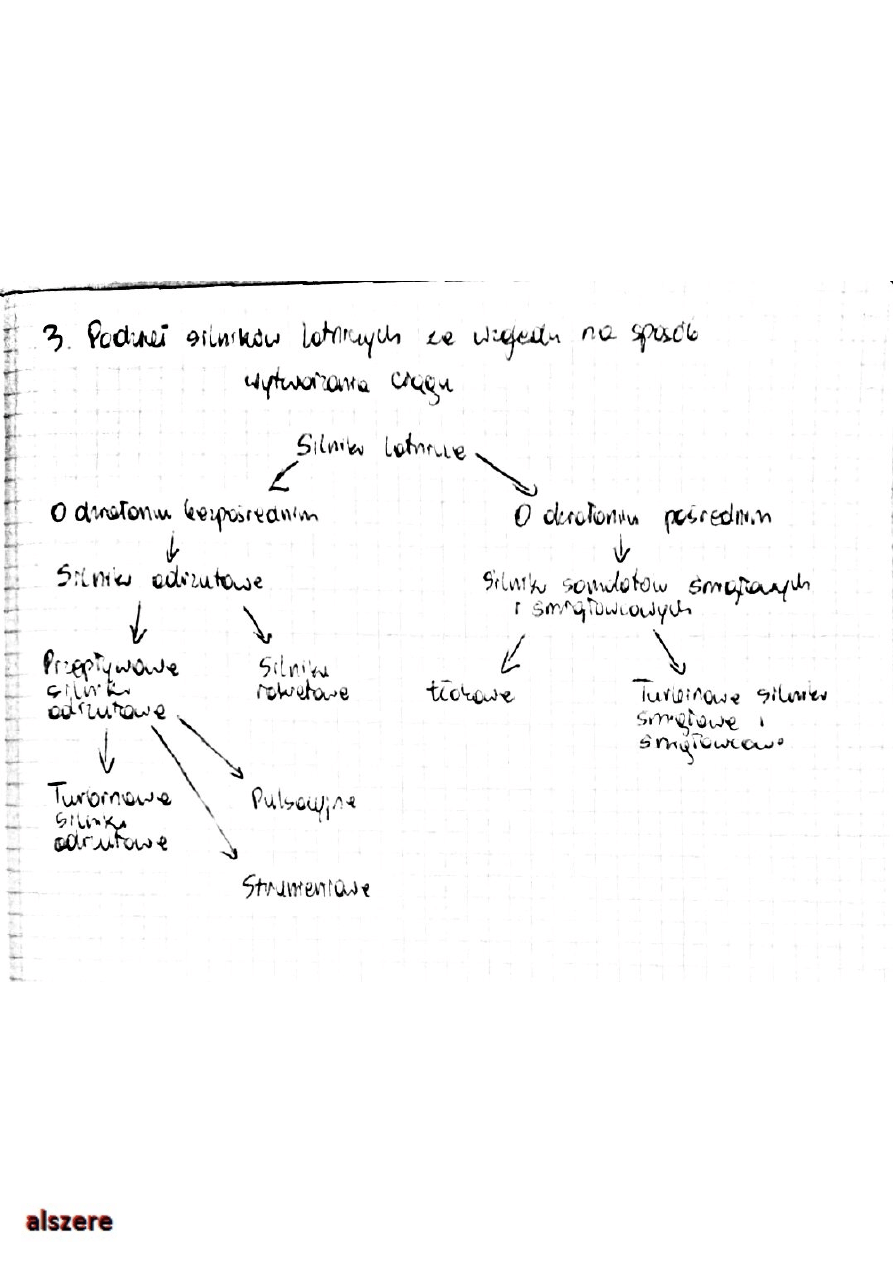 3. Podział silników lotniczych ze względu na sposób
wytwarzania ciągu
Silniki lotnicze
O działaniu bezpośrednim
O działaniu pośrednim
Silniki odrzutowe
Silniki samolotów śmigłowych
i śmigłowcowych
Przepływowe
silniki
odrzutowe
Silniki
rakietowe
tłokowe
Turbinowe silniki
śmigłowe i
śmigłowcowe
Turbinowe
silniki
odrzutowe
Pulsacyjne
Strumieniowe
alszere